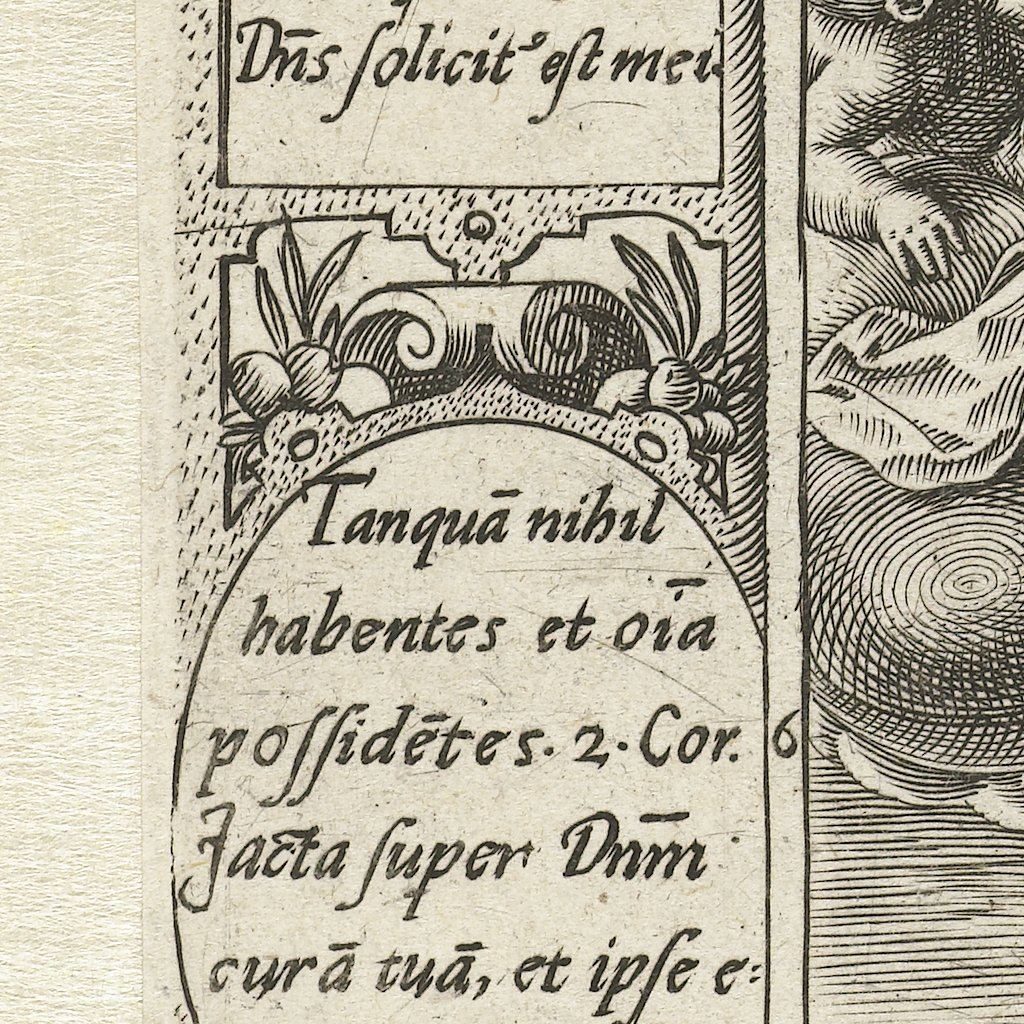 Dn̄s ſolicit⁹ eſt mei
Tanquā nihil
habentes et oīa
poſſidētes. 2. Cor. 6
Jacta ſuper Dnm̄
curā tuā, et ipſe e: